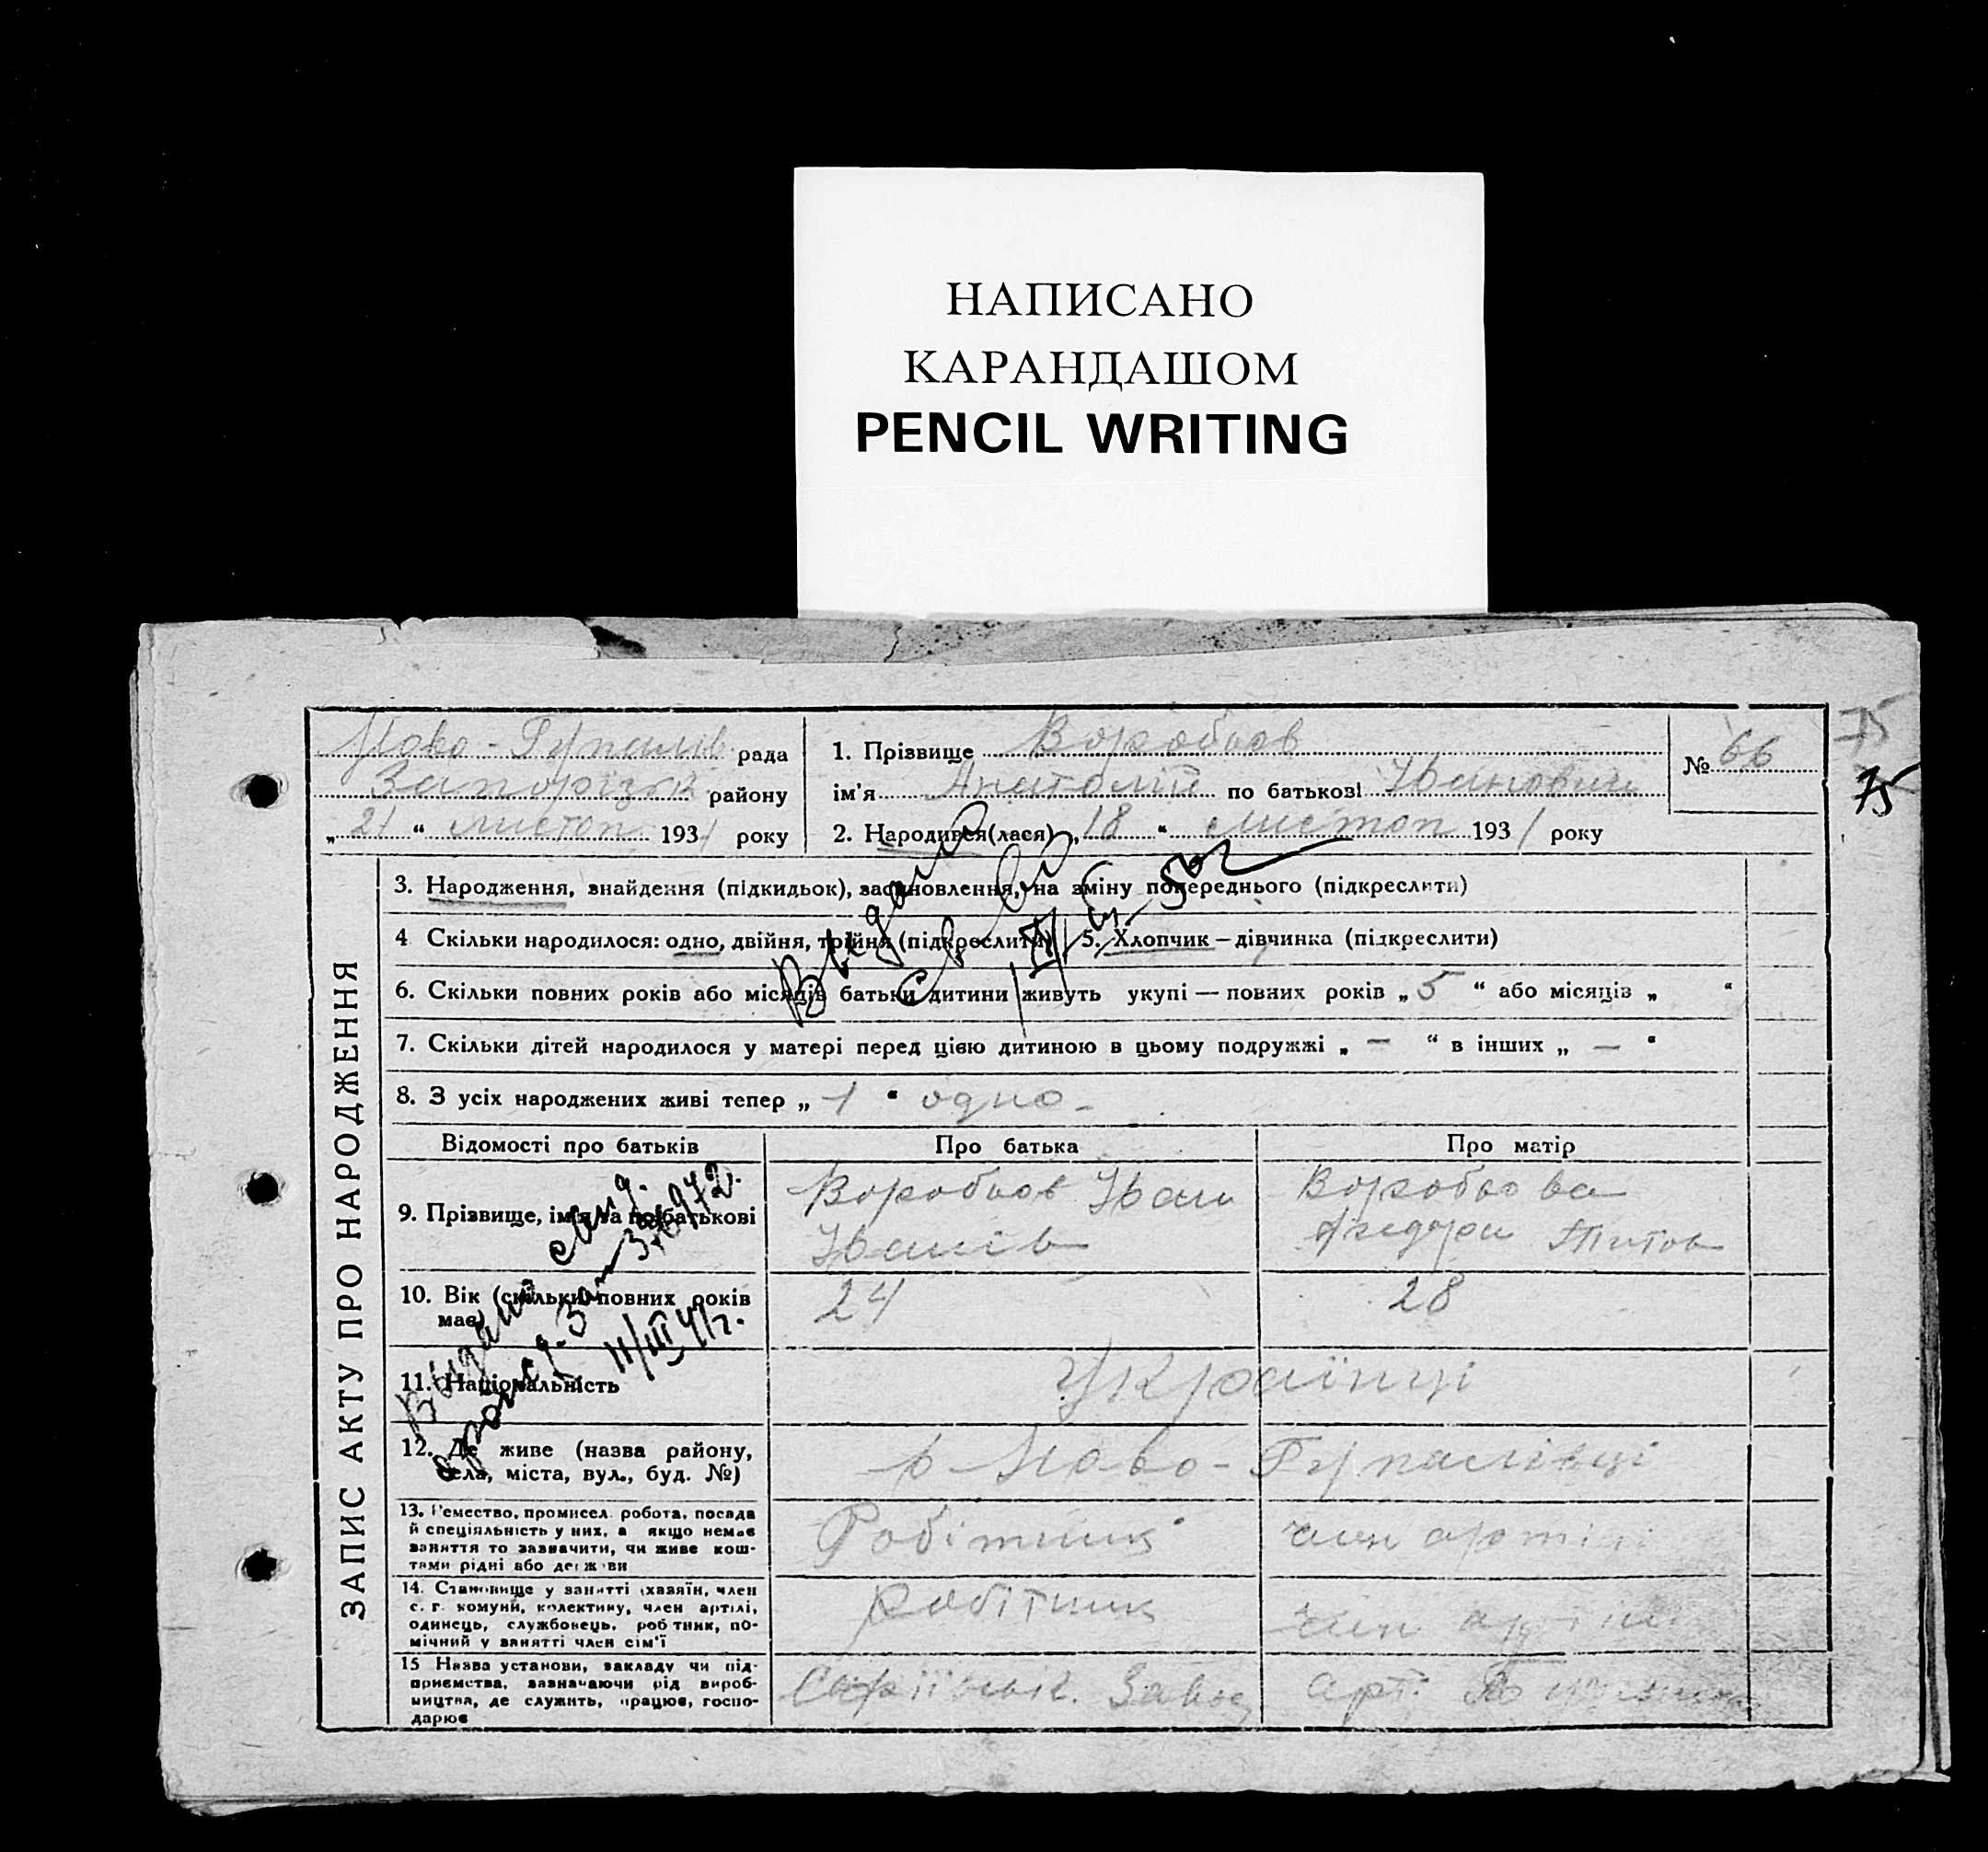 НАПИСАНО
КАРАНДАШОМ
PENCIL WRITING
ЗАПИС АКТУ ПРО НАРОДЖЕННЯ
Ново-Гупалів рада
Запорізьк району
„21“ листоп 1931 року
1. Прізвище Воробйов
ім'я Анатолій по батькові Іванович
2. Народився(лася) „18“ листоп 1931 року
№ 66
75
75
3. Народження, знайдення (підкидьок), засиновлення, на зміну попереднього (підкреслити)
4 Скільки народилося: одно, двійня, трійня (підкреслити) 5. Хлопчик – дівчинка (підкреслити)
6. Скільки повних років або місяців батьки дитини живуть укупі — повних років „5“ або місяців „ “
7. Скільки дітей народилося у матері перед цією дитиною в цьому подружжі „ — “ в інших „ — “
8. З усіх народжених живі тепер „1“ одно
Відомості про батьків Про батька Про матір
9. Прізвище, ім'я та по батькові
Воробйов Іван
Іванів
Воробйова
Титов
10. Вік (скільки повних років
має)
24
28
11. Національність
Українці
12. Де живе (назва району,
села, міста, вул., буд. №)
Ново-Гупалівці
13. Ремество, промисел. робота, посада
й спеціяльність у них, а якщо немає
заняття то зазначити, чи живе кош-
тами рідні або держави
Робітник
член артілі
14. Становище у занятті (хазяїн, член
с. г. комуни, колективу, член артілі,
одинець, службовець, робітник, по-
мічний у занятті член сім'ї
Робітник
член артілі
15 Назва установи, закладу чи під-
приємства, зазначаючи рід вироб-
ництва, де служить, працює, госпо-
дарює
Завод
арт.
Видано
Виданий свид.
11/III 41 г.